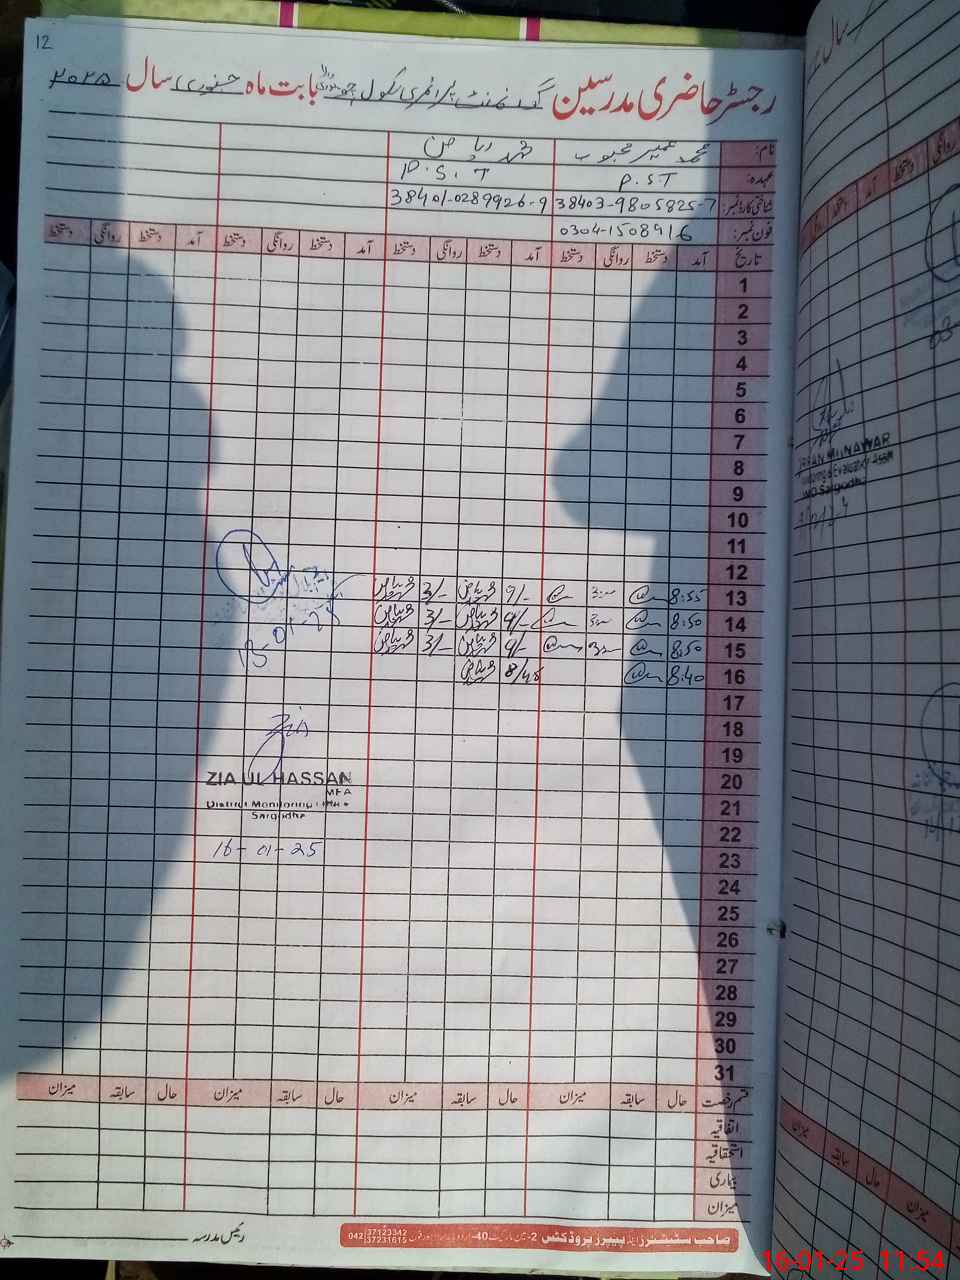 12
رجسٹر حاضری مدرسین گورنمنٹ پرائمری سکول بابت ماہ جنوری سال ۲۰۲۵
نام: محمد عمیر محبوب
عہدہ: P.S.T P.S.T
شناختی کارڈ نمبر: 38403-9805825-7 38401-0289926-9
فون نمبر: 0304-1508916
تاریخ آمد دستخط روانگی دستخط آمد دستخط روانگی دستخط آمد دستخط روانگی دستخط آمد دستخط روانگی دستخط
1
2
3
4
5
6
7
8
9
10
11
12
13 8:55 3:00 9/- 3/-
14 8:50 9/- 3/-
15 8:50 9/- 3/-
16 8:40 8/45
17
18
19
20
21
22
23
24
25
26
27
28
29
30
31
13-01-25
Zia
ZIA UL HASSAN
MEA
District Monitoring
Sargodha
16-01-25
قسم رخصت حال سابقہ میزان حال سابقہ میزان حال سابقہ میزان حال سابقہ میزان
اتفاقیہ
استحقاقیہ
بیماری
میزان
رئیس مدرسہ
صاحب سٹیشنرز اینڈ پیپرز پروڈکٹس
042 37123342
37231615
سال
روانگی دستخط آمد دستخط
IRFAN MUNAWAR
Sargodha
میزان سابقہ حال میزان
16-01-25 11:54